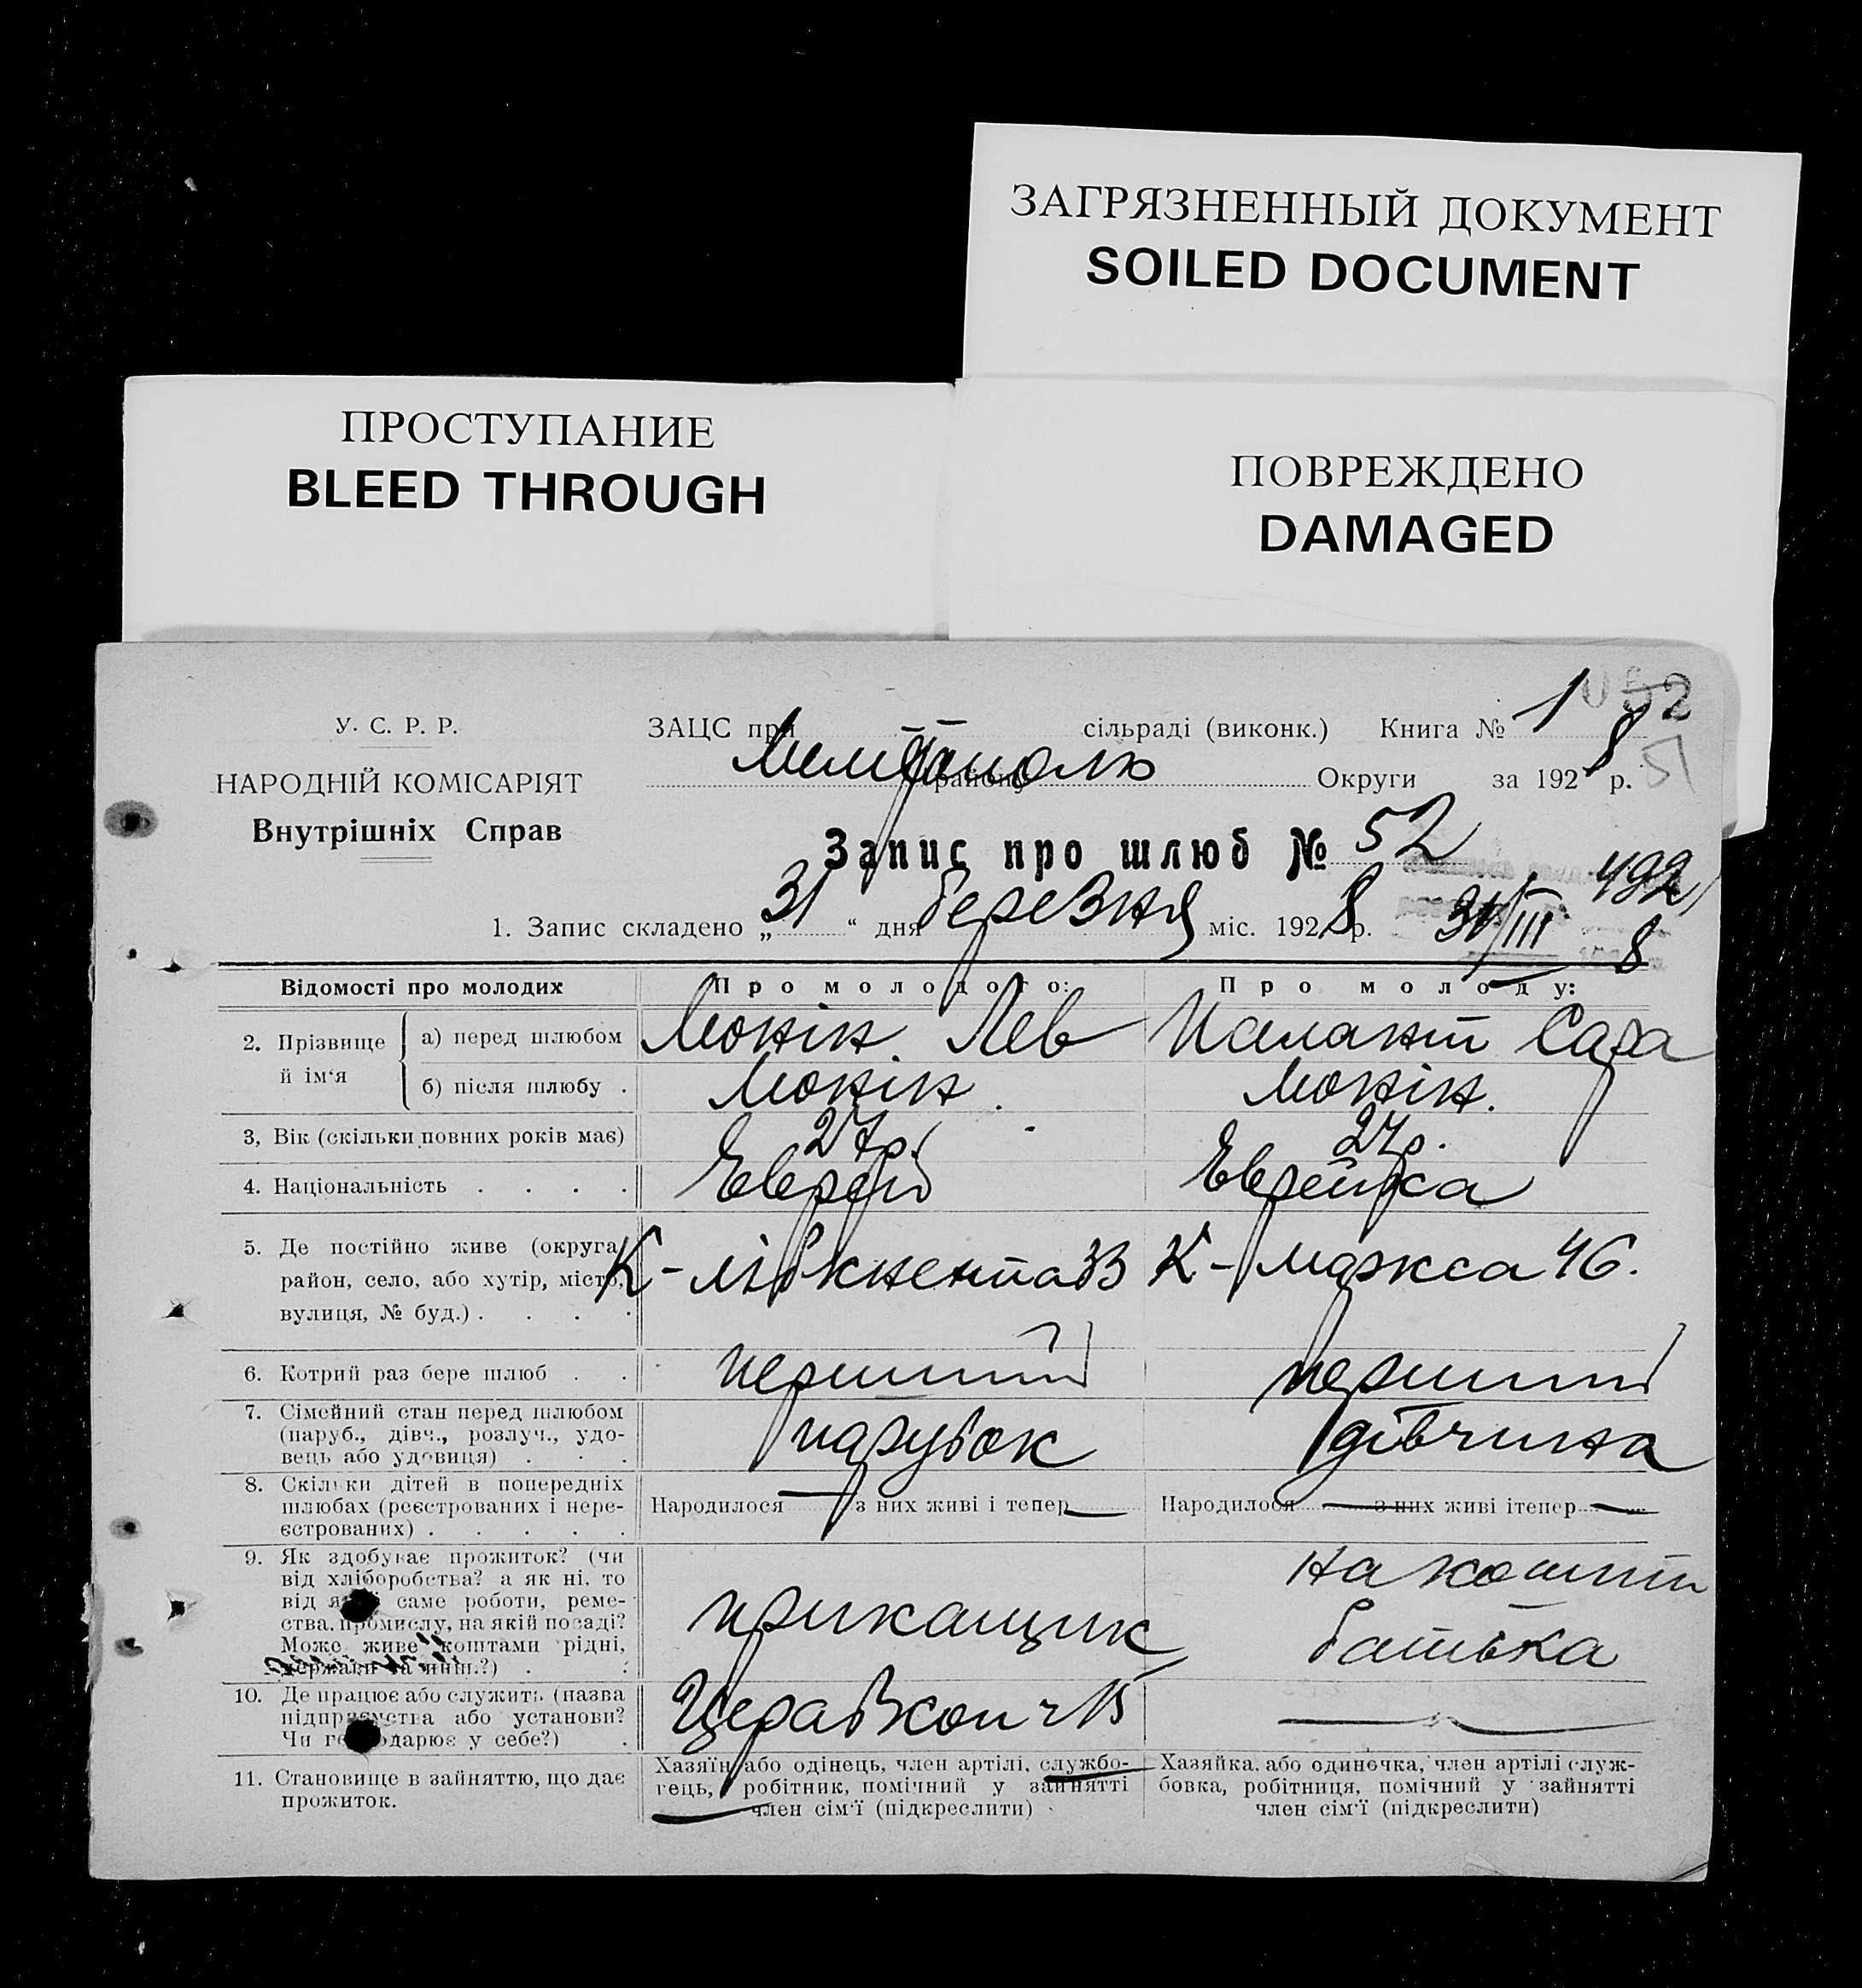 ЗАГРЯЗНЕННЫЙ ДОКУМЕНТ
SOILED DOCUMENT
ПРОСТУПАНИЕ
BLEED THROUGH
ПОВРЕЖДЕНО
DAMAGED
У. С. Р. Р.
НАРОДНІЙ КОМІСАРІЯТ
Внутрішніх Справ
ЗАЦС при сільраді (виконк.) Книга № 1
району Округи за 1928 р.
51
Запис про шлюб № 52
492
1. Запис складено „31“ дня березня міс. 1928 р. 31/III 8
Відомості про молодих
Про молодого:
Про молоду:
2. Прізвище й ім‘я
а) перед шлюбом
Мокін. Лев
Палант Сара
б) після шлюбу .
Мокін.
Мокін.
3, Вік (скільки повних років має)
27р.
27р.
4. Національність . . . .
Еврей
Еврейка
5. Де постійно живе (округа,
район, село, або хутір, місто,
вулиця, № буд.) . . . .
К-Лібкнехта 33
К-Маркса 46.
6. Котрий раз бере шлюб . .
перший
перший
7. Сімейний стан перед шлюбом
(паруб., дівч., розлуч., удо-
вець або удовиця) . . .
парубок
дівчина
8. Скільки дітей в попередніх
шлюбах (реєстрованих і нере-
єстрованих) . . . . .
Народилося — з них живі і тепер —
Народилося — з них живі ітепер —
9. Як здобуває прожиток? (чи
від хліборобства? а як ні, то
від саме роботи, реме-
ства, промислу, на якій посаді?
Може живе коштами рідні,
держави та инш.?) . .
прикащик
на кошти
батька
10. Де працює або служить (назва
підприємства або установи?
Чи господарює у себе?) .
Церабкоп
—
11. Становище в зайняттю, що дає
прожиток.
Хазяїн або одінець, член артілі, службо-
вець, робітник, помічний у зайнятті
член сім‘ї (підкреслити)
Хазяйка, або одиночка, член артілі служ-
бовка, робітниця, помічний у зайнятті
член сім‘ї (підкреслити)